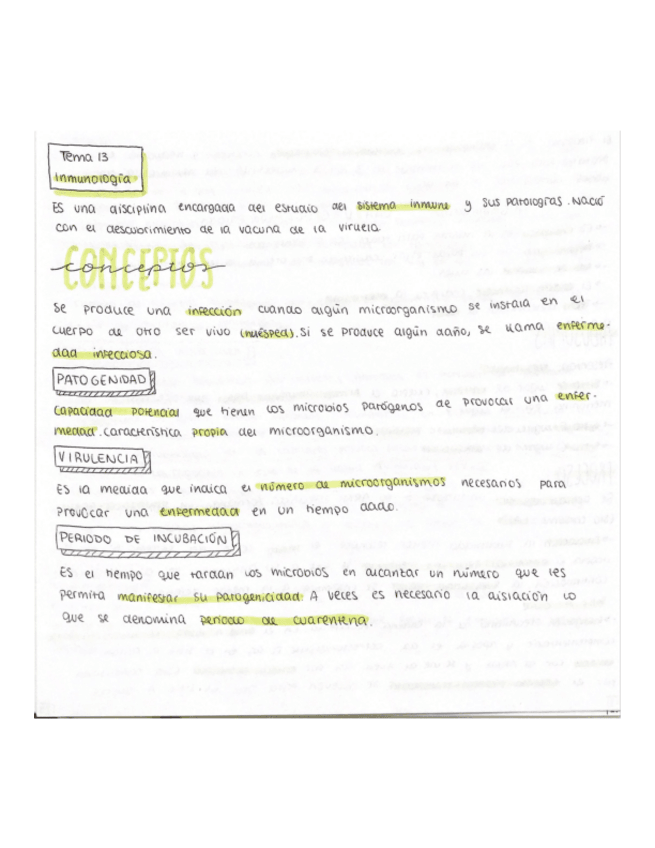 Tema 13
Inmunología
Es una disciplina encargada del estudio del sistema inmune y sus patologías. Nació
con el descubrimiento de la vacuna de la viruela.
CONCEPTOS
conceptos
Se produce una infección cuando algún microorganismo se instala en el
cuerpo de otro ser vivo (huésped). Si se produce algún daño, se llama enferme-
dad infecciosa.
PATOGENIDAD
Capacidad potencial que tienen los microbios patógenos de provocar una enfer-
medad. Característica propia del microorganismo.
VIRULENCIA
Es la medida que indica el número de microorganismos necesarios para
provocar una enfermedad en un tiempo dado.
PERIODO DE INCUBACIÓN
Es el tiempo que tardan los microbios en alcanzar un número que les
permita manifestar su patogenicidad. A veces es necesario la aislación lo
que se denomina periodo de cuarentena.